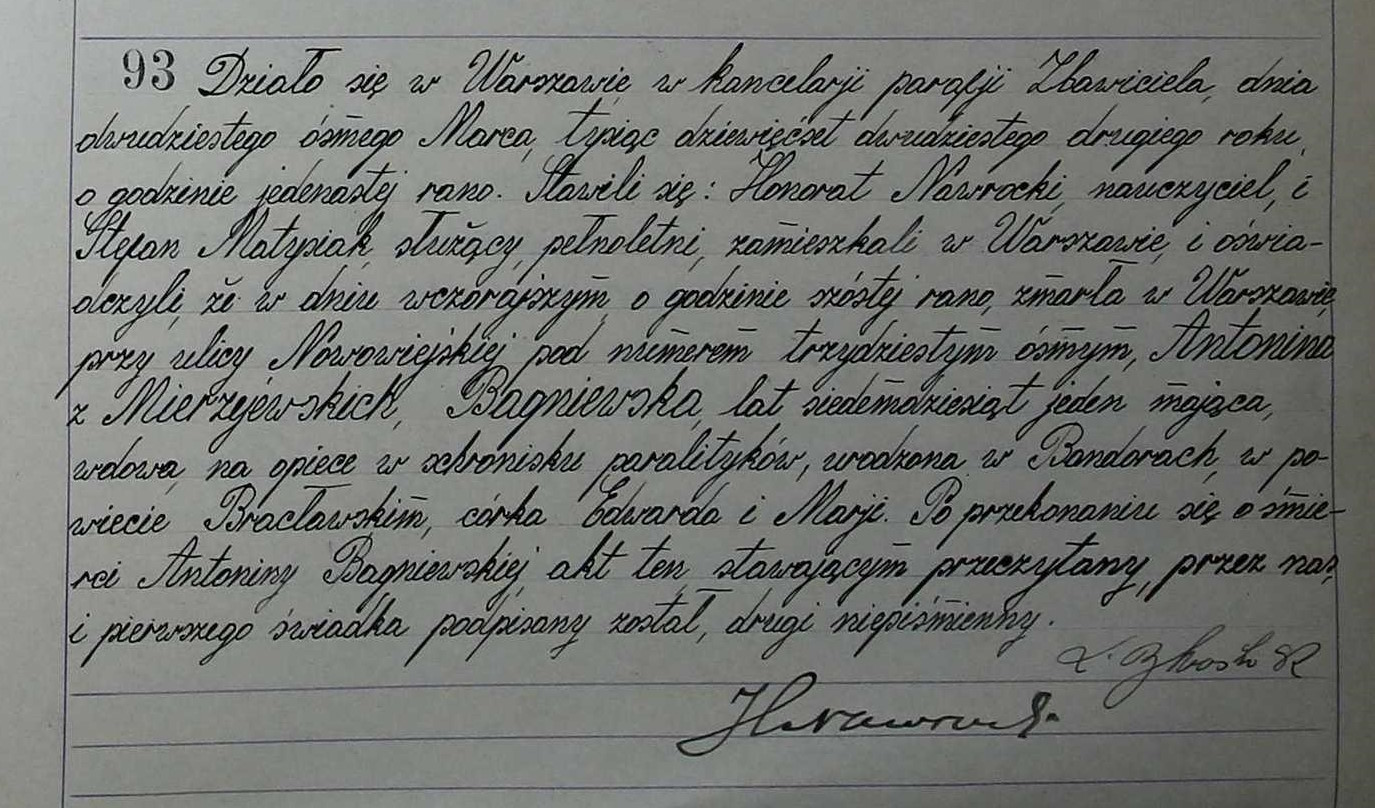 93 Działo się w Warszawie w kancelarji parafji Zbawiciela, dnia
dwudziestego ósmego Marca, tysiąc dziewięćset dwudziestego drugiego roku,
o godzinie jedenastej rano. Stawili się: Honorat Nawrocki, nauczyciel, i
Stefan Matysiak, służący, pełnoletni, zamieszkali w Warszawie, i oświa-
dczyli, że w dniu wczorajszym, o godzinie szóstej rano, zmarła w Warszawie,
przy ulicy Nowowiejskiej pod numerem trzydziestym ósmym, Antonina
z Mierzejewskich, Bagniewska, lat siedemdziesiąt jeden mająca,
wdowa, na opiece w schronisku paralityków, urodzona w Bondorach, w po-
wiecie Bracławskim, córka Edwarda i Marji. Po przekonaniu się o śmie-
rci Antoniny Bagniewskiej, akt ten, stawającym przeczytany, przez nas,
i pierwszego świadka podpisany został, drugi niepiśmienny.
H Nawrocki